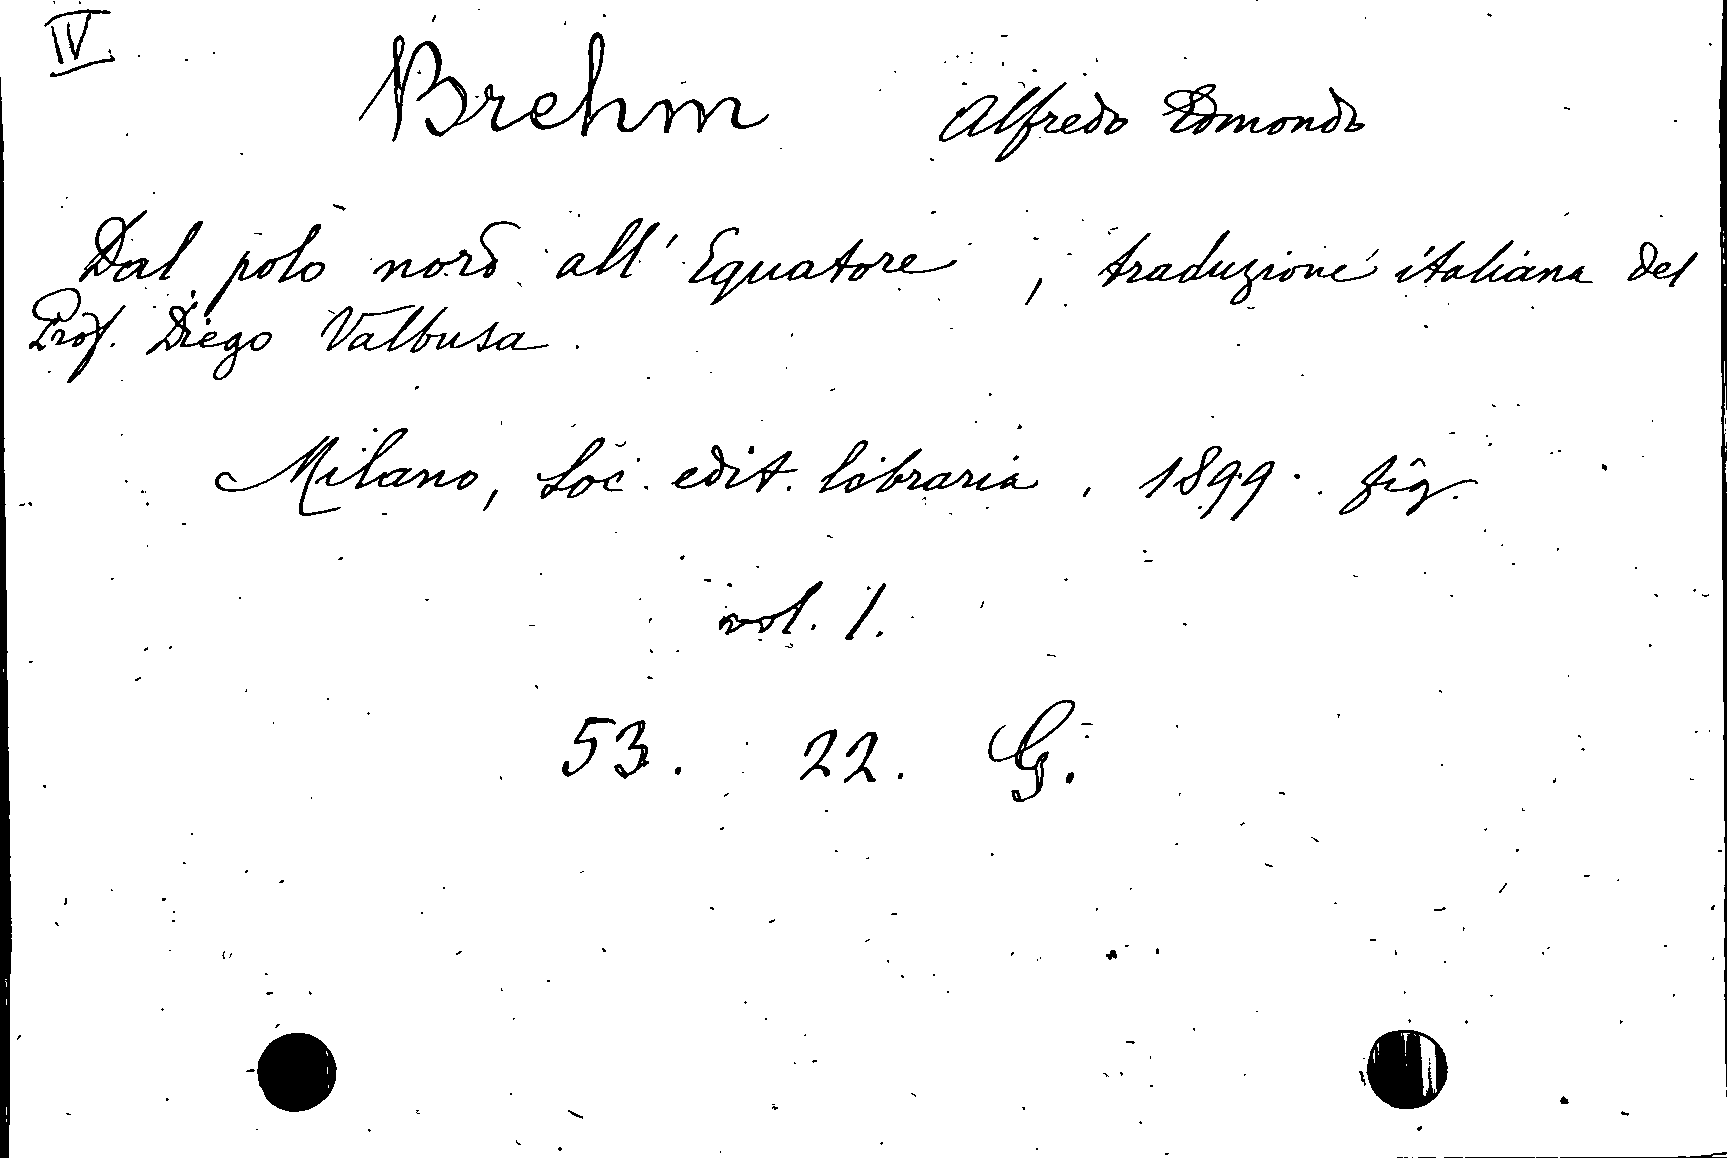 IV
Brehm Alfredo Edmondo
Dal polo nord all'Equatore, traduzione italiana del
Prof. Diego Valbusa.
Milano, Soc. edit. libraria. 1899. fig.
vol. 1.
53. 22. G.